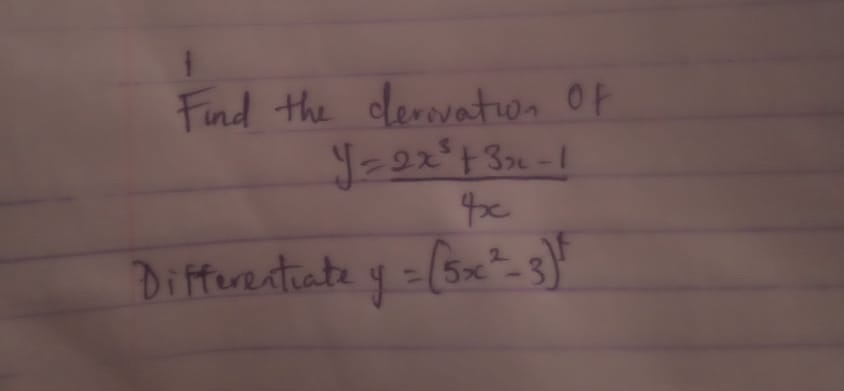 1
Find the derivation of
y = 2x³ + 3x - 1
4x
Differentiate y = (5x² - 3)